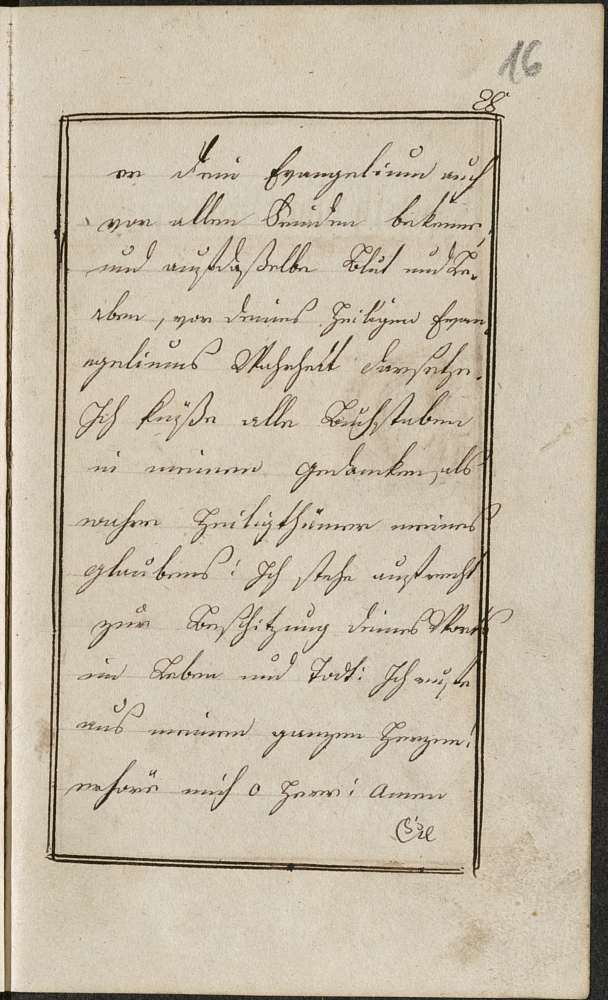 16
28
er dein Evangelium auch
vor allen Feinden bekenne,
und auf daßelbe Blut und Le-
eben, vor deines heiligen Evan
geliums Wahrheit darsetze.
Ich küße alle Buchstaben
in meinen gedancken, als
wahre Heiligthümer meines
glaubens! Ich stehe aufrecht
zur Beschitzung deines Worts
im Leben und Todt: Ich ruffe
aus meinem ganzen Herzen!
erhöre mich o Herr! Amen